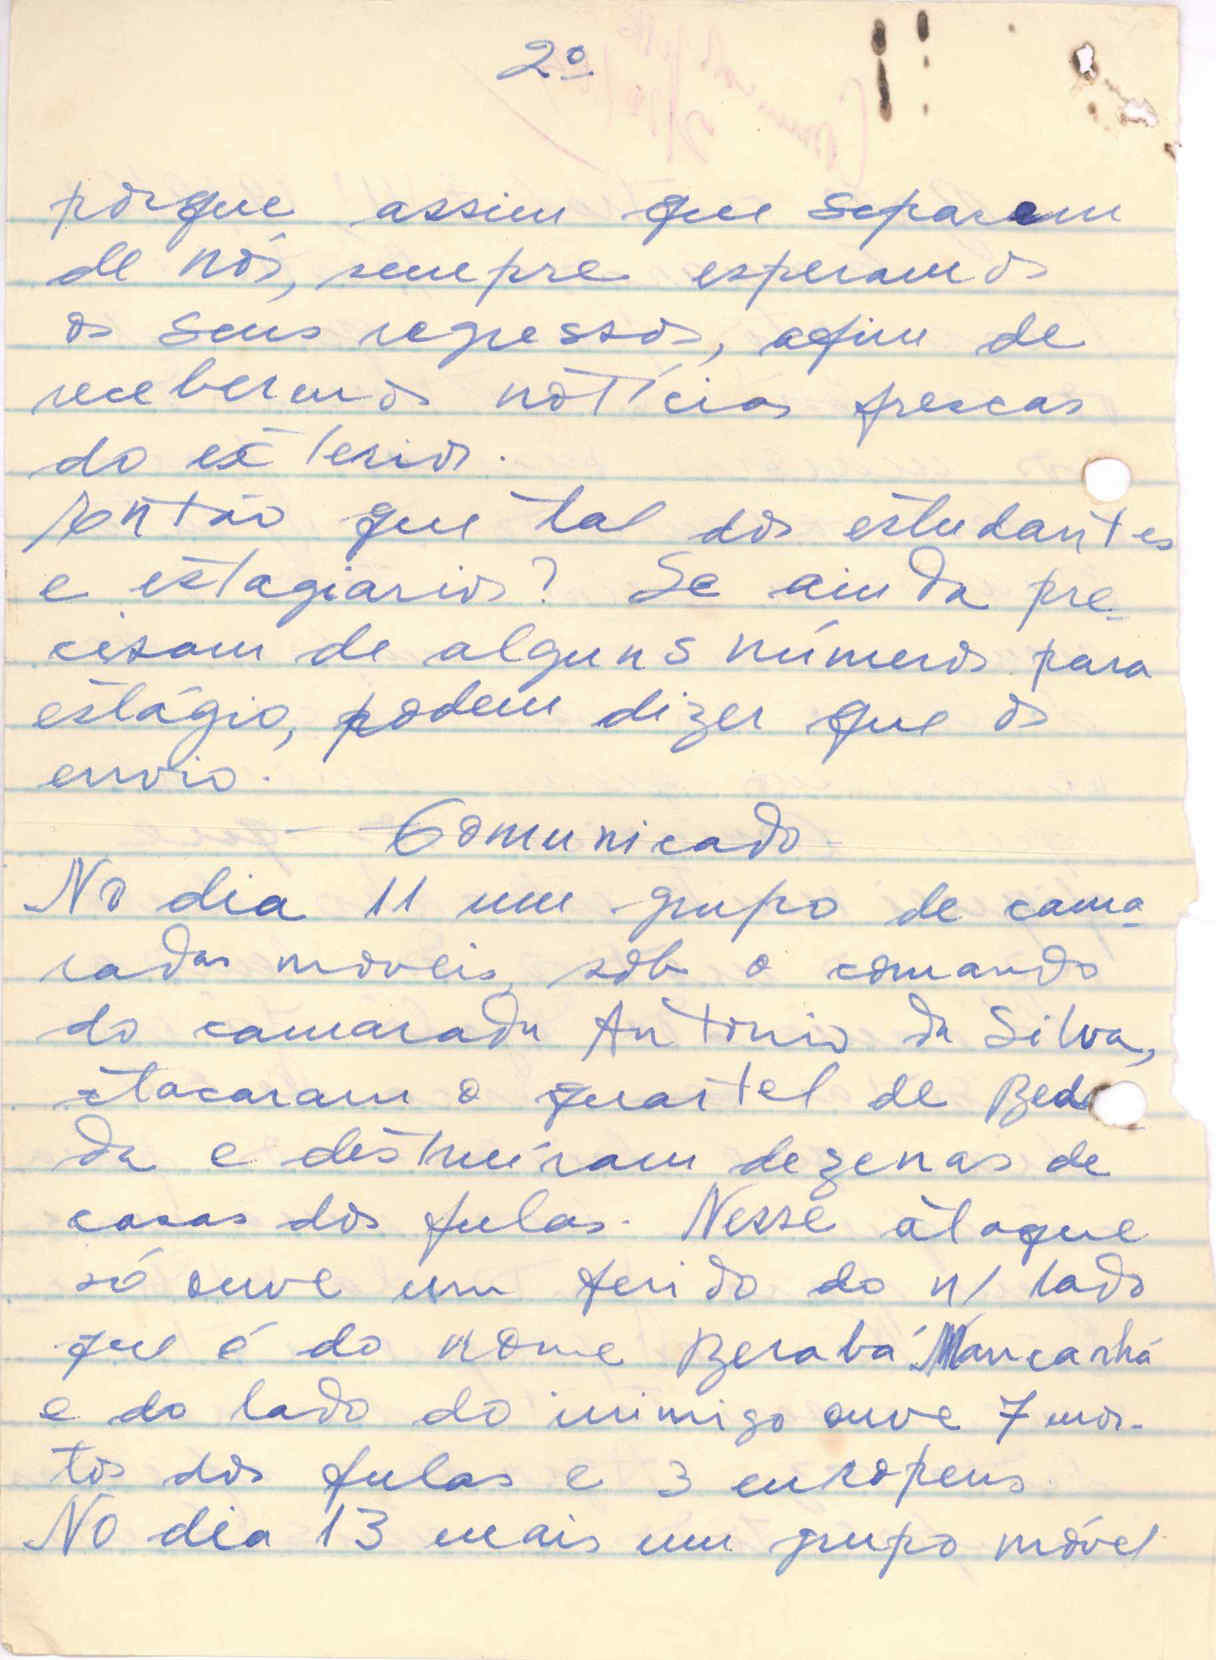 2º
porque assim que separam
de nós, sempre esperamos
os seus regressos, afim de
recebermos notícias frescas
do exterior.
Então que tal dos estudantes
e estagiarios? Se ainda pre-
cisam de alguns números para
estágio, podem dizer que os
envio.
- Comunicado -
No dia 11 um grupo de cama-
radas moveis, sob o comando
do camarada António da Silva,
atacaram o quartel de Beda
da e destruíram dezenas de
casas dos fulas. Nesse ataque
só ouve um ferido do n/ lado
que é do nome Beraba Mancanhá
e do lado do inimigo ouve 7 mor-
tos dos fulas e 3 europeus.
No dia 13 mais um grupo móvel